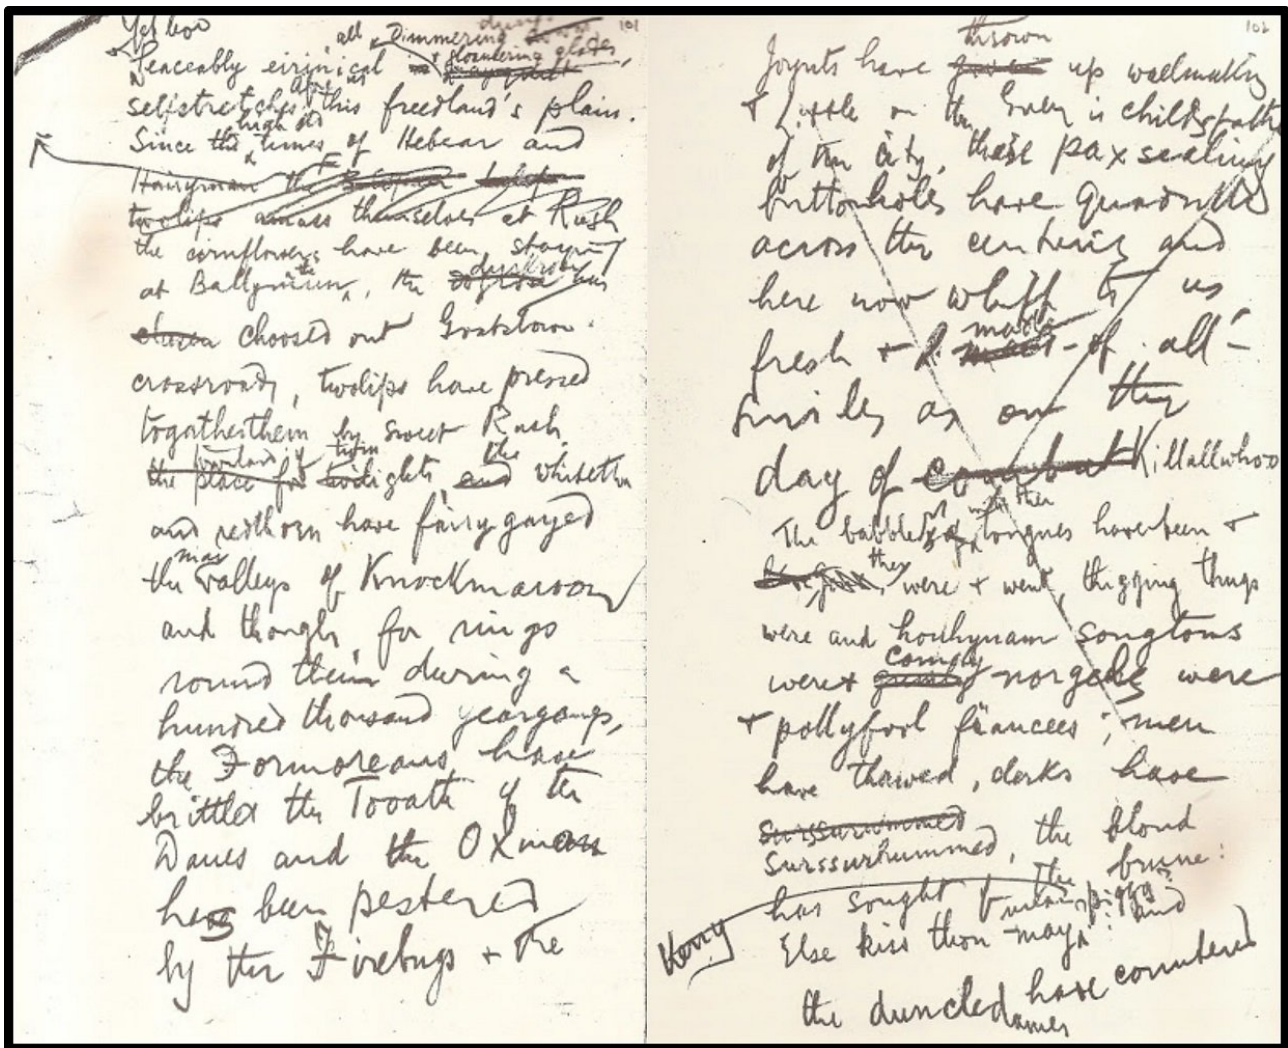 Yet how
all Dimmering dunes
101
& gloamering glades,
Peaceably eirinical
selfstretches this freedland's plain.
high old
Since the times of Hebear and
Hairyman the
twolips amass themselves at Rush
the cornflowers have been staying
at Ballymun, the duskrose has
chosen choosed out Goatstown
crossroads, twolips have pressed
togatherthem by sweet Rush,
the place for twilights, and the whitethorn
and redthorn have fairygayed
the mayvalleys of Knockmaroon
and though, for rings
round them during a
hundred thousand yeargangs,
the Formoreans have
brittled the Tooath of the
Danes and the Oxman
has been pestered
by the Firebugs & the
102
thrown
Joynts have given up wallmaking
& Little on the Green is childsfather
of the city, these paxsealing
buttonholes have quadrilled
across the centuries and
here now whiff to us
fresh & made-of-all-
smiles as on the
day of combat Killallwhoo
The babblers with their tongues have been &
they were & went, thigging thugs
were and houhynam songtoms
were & comely norgels were
& pollyfool fiancees; men
have thawed, clerks have
surssurummed
surssurhummed, the blond
has sought the brune:
Else kiss thou may, mean Kerry piggy?: and
the duncledames have countered